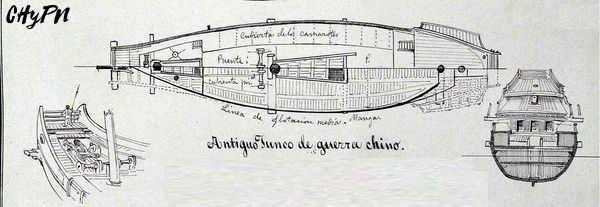 CHyPN
Cubierta de los camarotes
Puente
P.
Cubierta
Linea de flotacion media. Manga.
Antiguo Junco de guerra chino.